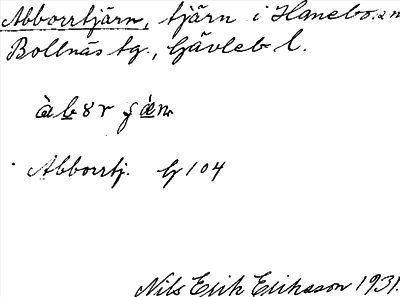 Abborrtjärn, tjärn i Hanebo sn
Bollnäs tg., Gävleb l.
Abborrtj. G 104
Nils Erik Eriksson 1931.